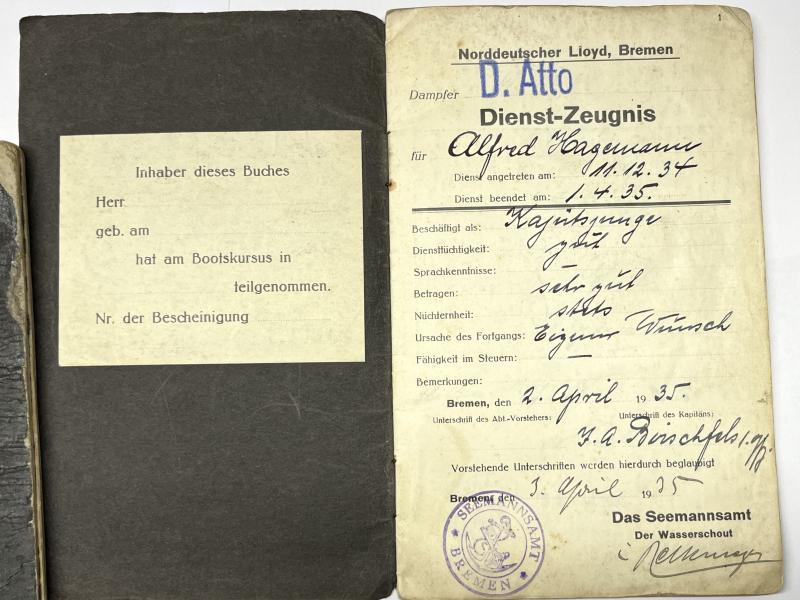 Inhaber dieses Buches
Herr
geb. am
hat am Bootskursus in
teilgenommen.
Nr. der Bescheinigung
1
Norddeutscher Lloyd, Bremen
Dampfer D. Atto
Dienst-Zeugnis
für Alfred Hagemann
Dienst angetreten am: 11.12.34
Dienst beendet am: 1.4.35.
Beschäftigt als: Kajütsjunge
Diensttüchtigkeit: gut
Sprachkenntnisse: –
Betragen: sehr gut
Nüchternheit: stets
Ursache des Fortgangs: Eigener Wunsch
Fähigkeit im Steuern: –
Bemerkungen:
Bremen, den 2. April 1935.
Unterschrift des Abt.-Vorstehers: Unterschrift des Kapitäns:
Vorstehende Unterschriften werden hierdurch beglaubigt
Bremen, den 3. April 1935
Das Seemannsamt
Der Wasserschout
SEEMANNSAMT
BREMEN